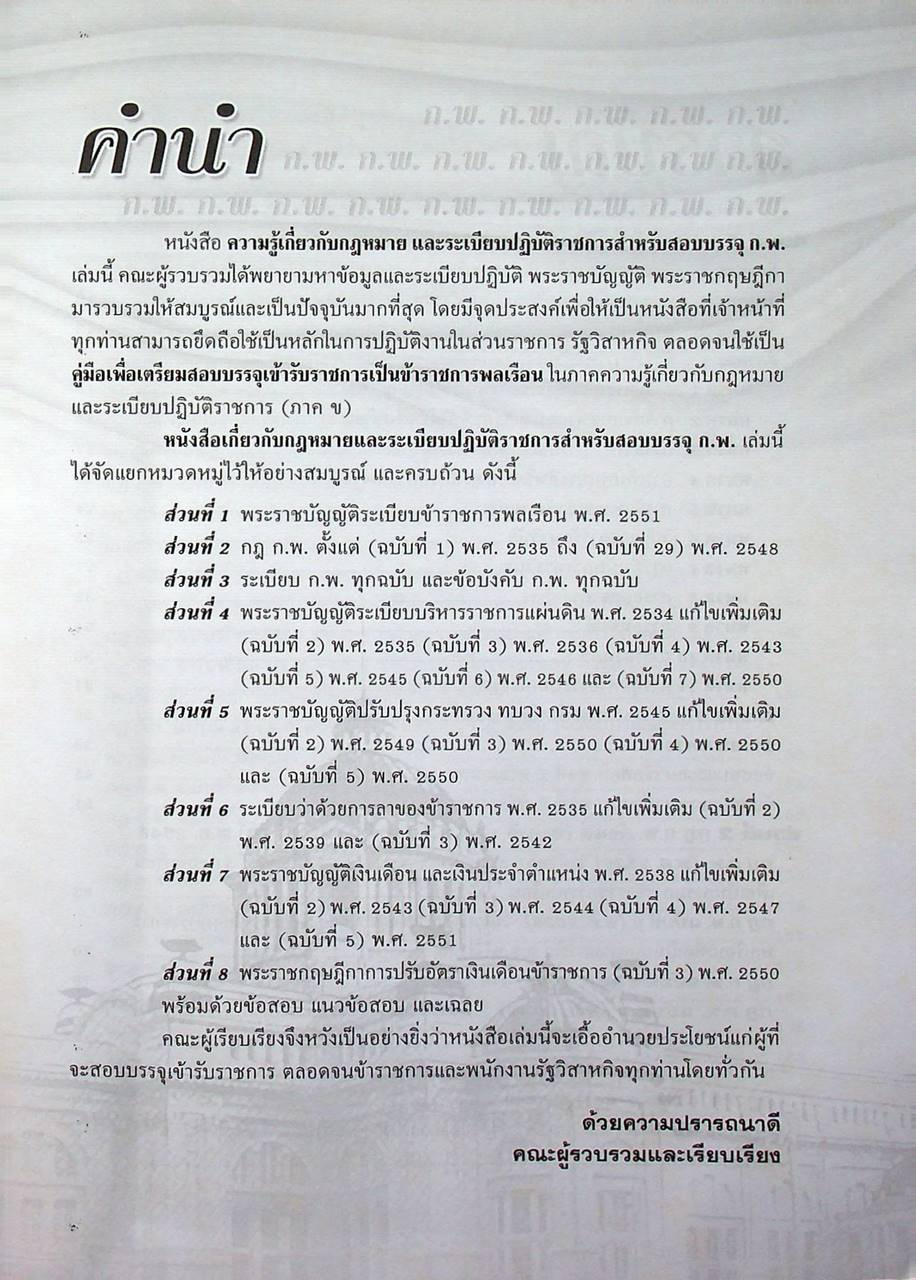 ก.พ. ก.พ. ก.พ. ก.พ. ก.พ.
คำนำ
ก.พ. ก.พ. ก.พ. ก.พ. ก.พ. ก.พ ก.พ.
ก.พ. ก.พ. ก.พ. ก.พ. ก.พ. ก.พ. ก.พ. ก.พ. ก.พ.
หนังสือ ความรู้เกี่ยวกับกฎหมาย และระเบียบปฏิบัติราชการสำหรับสอบบรรจุ ก.พ.
เล่มนี้ คณะผู้รวบรวมได้พยายามหาข้อมูลและระเบียบปฏิบัติ พระราชบัญญัติ พระราชกฤษฎีกา
มารวบรวมให้สมบูรณ์และเป็นปัจจุบันมากที่สุด โดยมีจุดประสงค์เพื่อให้เป็นหนังสือที่เจ้าหน้าที่
ทุกท่านสามารถยึดถือใช้เป็นหลักในการปฏิบัติงานในส่วนราชการ รัฐวิสาหกิจ ตลอดจนใช้เป็น
คู่มือเพื่อเตรียมสอบบรรจุเข้ารับราชการเป็นข้าราชการพลเรือน ในภาคความรู้เกี่ยวกับกฎหมาย
และระเบียบปฏิบัติราชการ (ภาค ข)
หนังสือเกี่ยวกับกฎหมายและระเบียบปฏิบัติราชการสำหรับสอบบรรจุ ก.พ. เล่มนี้
ได้จัดแยกหมวดหมู่ไว้ให้อย่างสมบูรณ์ และครบถ้วน ดังนี้
ส่วนที่ 1 พระราชบัญญัติระเบียบข้าราชการพลเรือน พ.ศ. 2551
ส่วนที่ 2 กฎ ก.พ. ตั้งแต่ (ฉบับที่ 1) พ.ศ. 2535 ถึง (ฉบับที่ 29) พ.ศ. 2548
ส่วนที่ 3 ระเบียบ ก.พ. ทุกฉบับ และข้อบังคับ ก.พ. ทุกฉบับ
ส่วนที่ 4 พระราชบัญญัติระเบียบบริหารราชการแผ่นดิน พ.ศ. 2534 แก้ไขเพิ่มเติม
(ฉบับที่ 2) พ.ศ. 2535 (ฉบับที่ 3) พ.ศ. 2536 (ฉบับที่ 4) พ.ศ. 2543
(ฉบับที่ 5) พ.ศ. 2545 (ฉบับที่ 6) พ.ศ. 2546 และ (ฉบับที่ 7) พ.ศ. 2550
ส่วนที่ 5 พระราชบัญญัติปรับปรุงกระทรวง ทบวง กรม พ.ศ. 2545 แก้ไขเพิ่มเติม
(ฉบับที่ 2) พ.ศ. 2549 (ฉบับที่ 3) พ.ศ. 2550 (ฉบับที่ 4) พ.ศ. 2550
และ (ฉบับที่ 5) พ.ศ. 2550
ส่วนที่ 6 ระเบียบว่าด้วยการลาของข้าราชการ พ.ศ. 2535 แก้ไขเพิ่มเติม (ฉบับที่ 2)
พ.ศ. 2539 และ (ฉบับที่ 3) พ.ศ. 2542
ส่วนที่ 7 พระราชบัญญัติเงินเดือน และเงินประจำตำแหน่ง พ.ศ. 2538 แก้ไขเพิ่มเติม
(ฉบับที่ 2) พ.ศ. 2543 (ฉบับที่ 3) พ.ศ. 2544 (ฉบับที่ 4) พ.ศ. 2547
และ (ฉบับที่ 5) พ.ศ. 2551
ส่วนที่ 8 พระราชกฤษฎีกาการปรับอัตราเงินเดือนข้าราชการ (ฉบับที่ 3) พ.ศ. 2550
พร้อมด้วยข้อสอบ แนวข้อสอบ และเฉลย
คณะผู้เรียบเรียงจึงหวังเป็นอย่างยิ่งว่าหนังสือเล่มนี้จะเอื้ออำนวยประโยชน์แก่ผู้ที่
จะสอบบรรจุเข้ารับราชการ ตลอดจนข้าราชการและพนักงานรัฐวิสาหกิจทุกท่านโดยทั่วกัน
ด้วยความปรารถนาดี
คณะผู้รวบรวมและเรียบเรียง